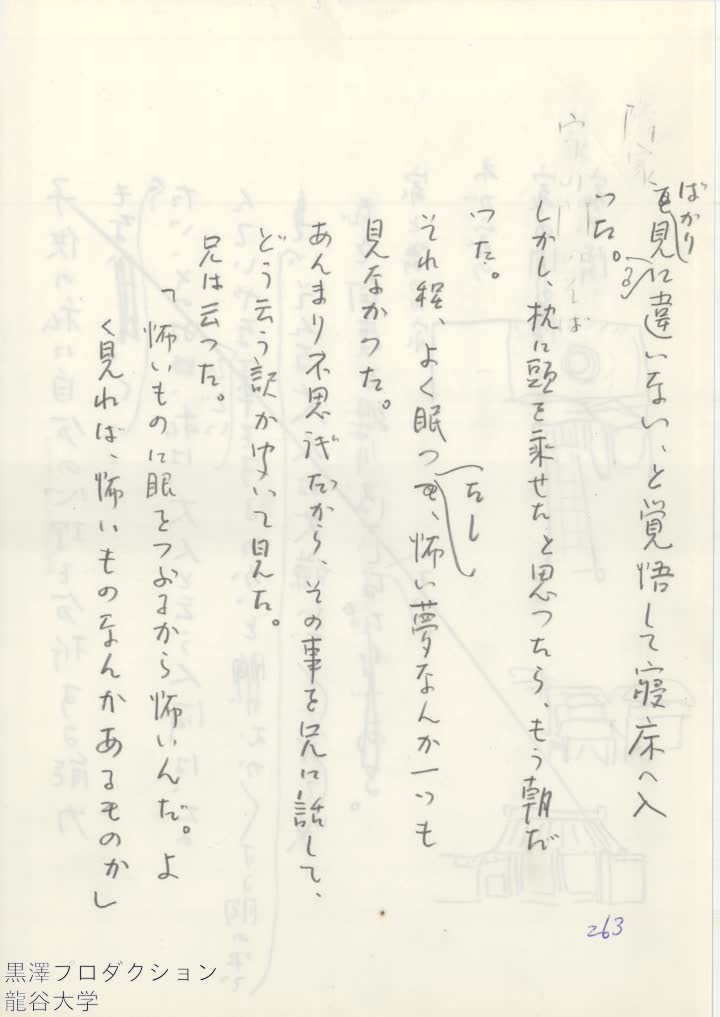 ばかり
見るに違いない、と覚悟して寝床へ入
つた。
しかし、枕に頭を乗せたと思つたら、もう朝だ
つた。
それ程、よく眠つたし、怖い夢なんか一つも
見なかつた。
あんまり不思議だから、その事を兄に話して、
どう云う訳かきいて見た。
兄は云つた。
「怖いものに眼をつぶるから怖いんだ。よ
く見れば、怖いものなんかあるものか」
263
黒澤プロダクション
龍谷大学